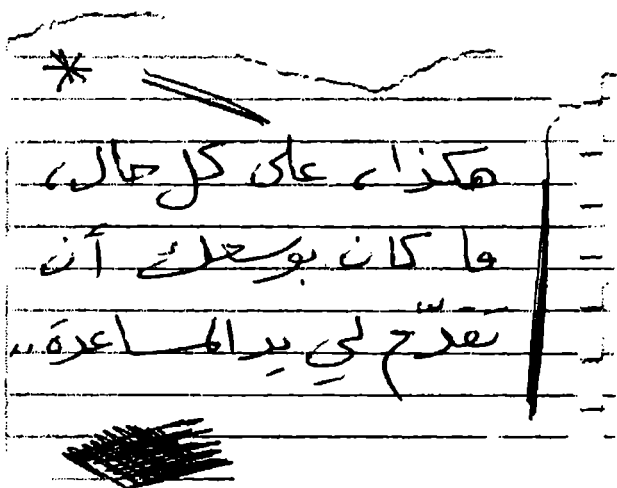 هكذا، على كل حال،
ما كان بوسعك أن
تقدّم لي يد المساعدة..